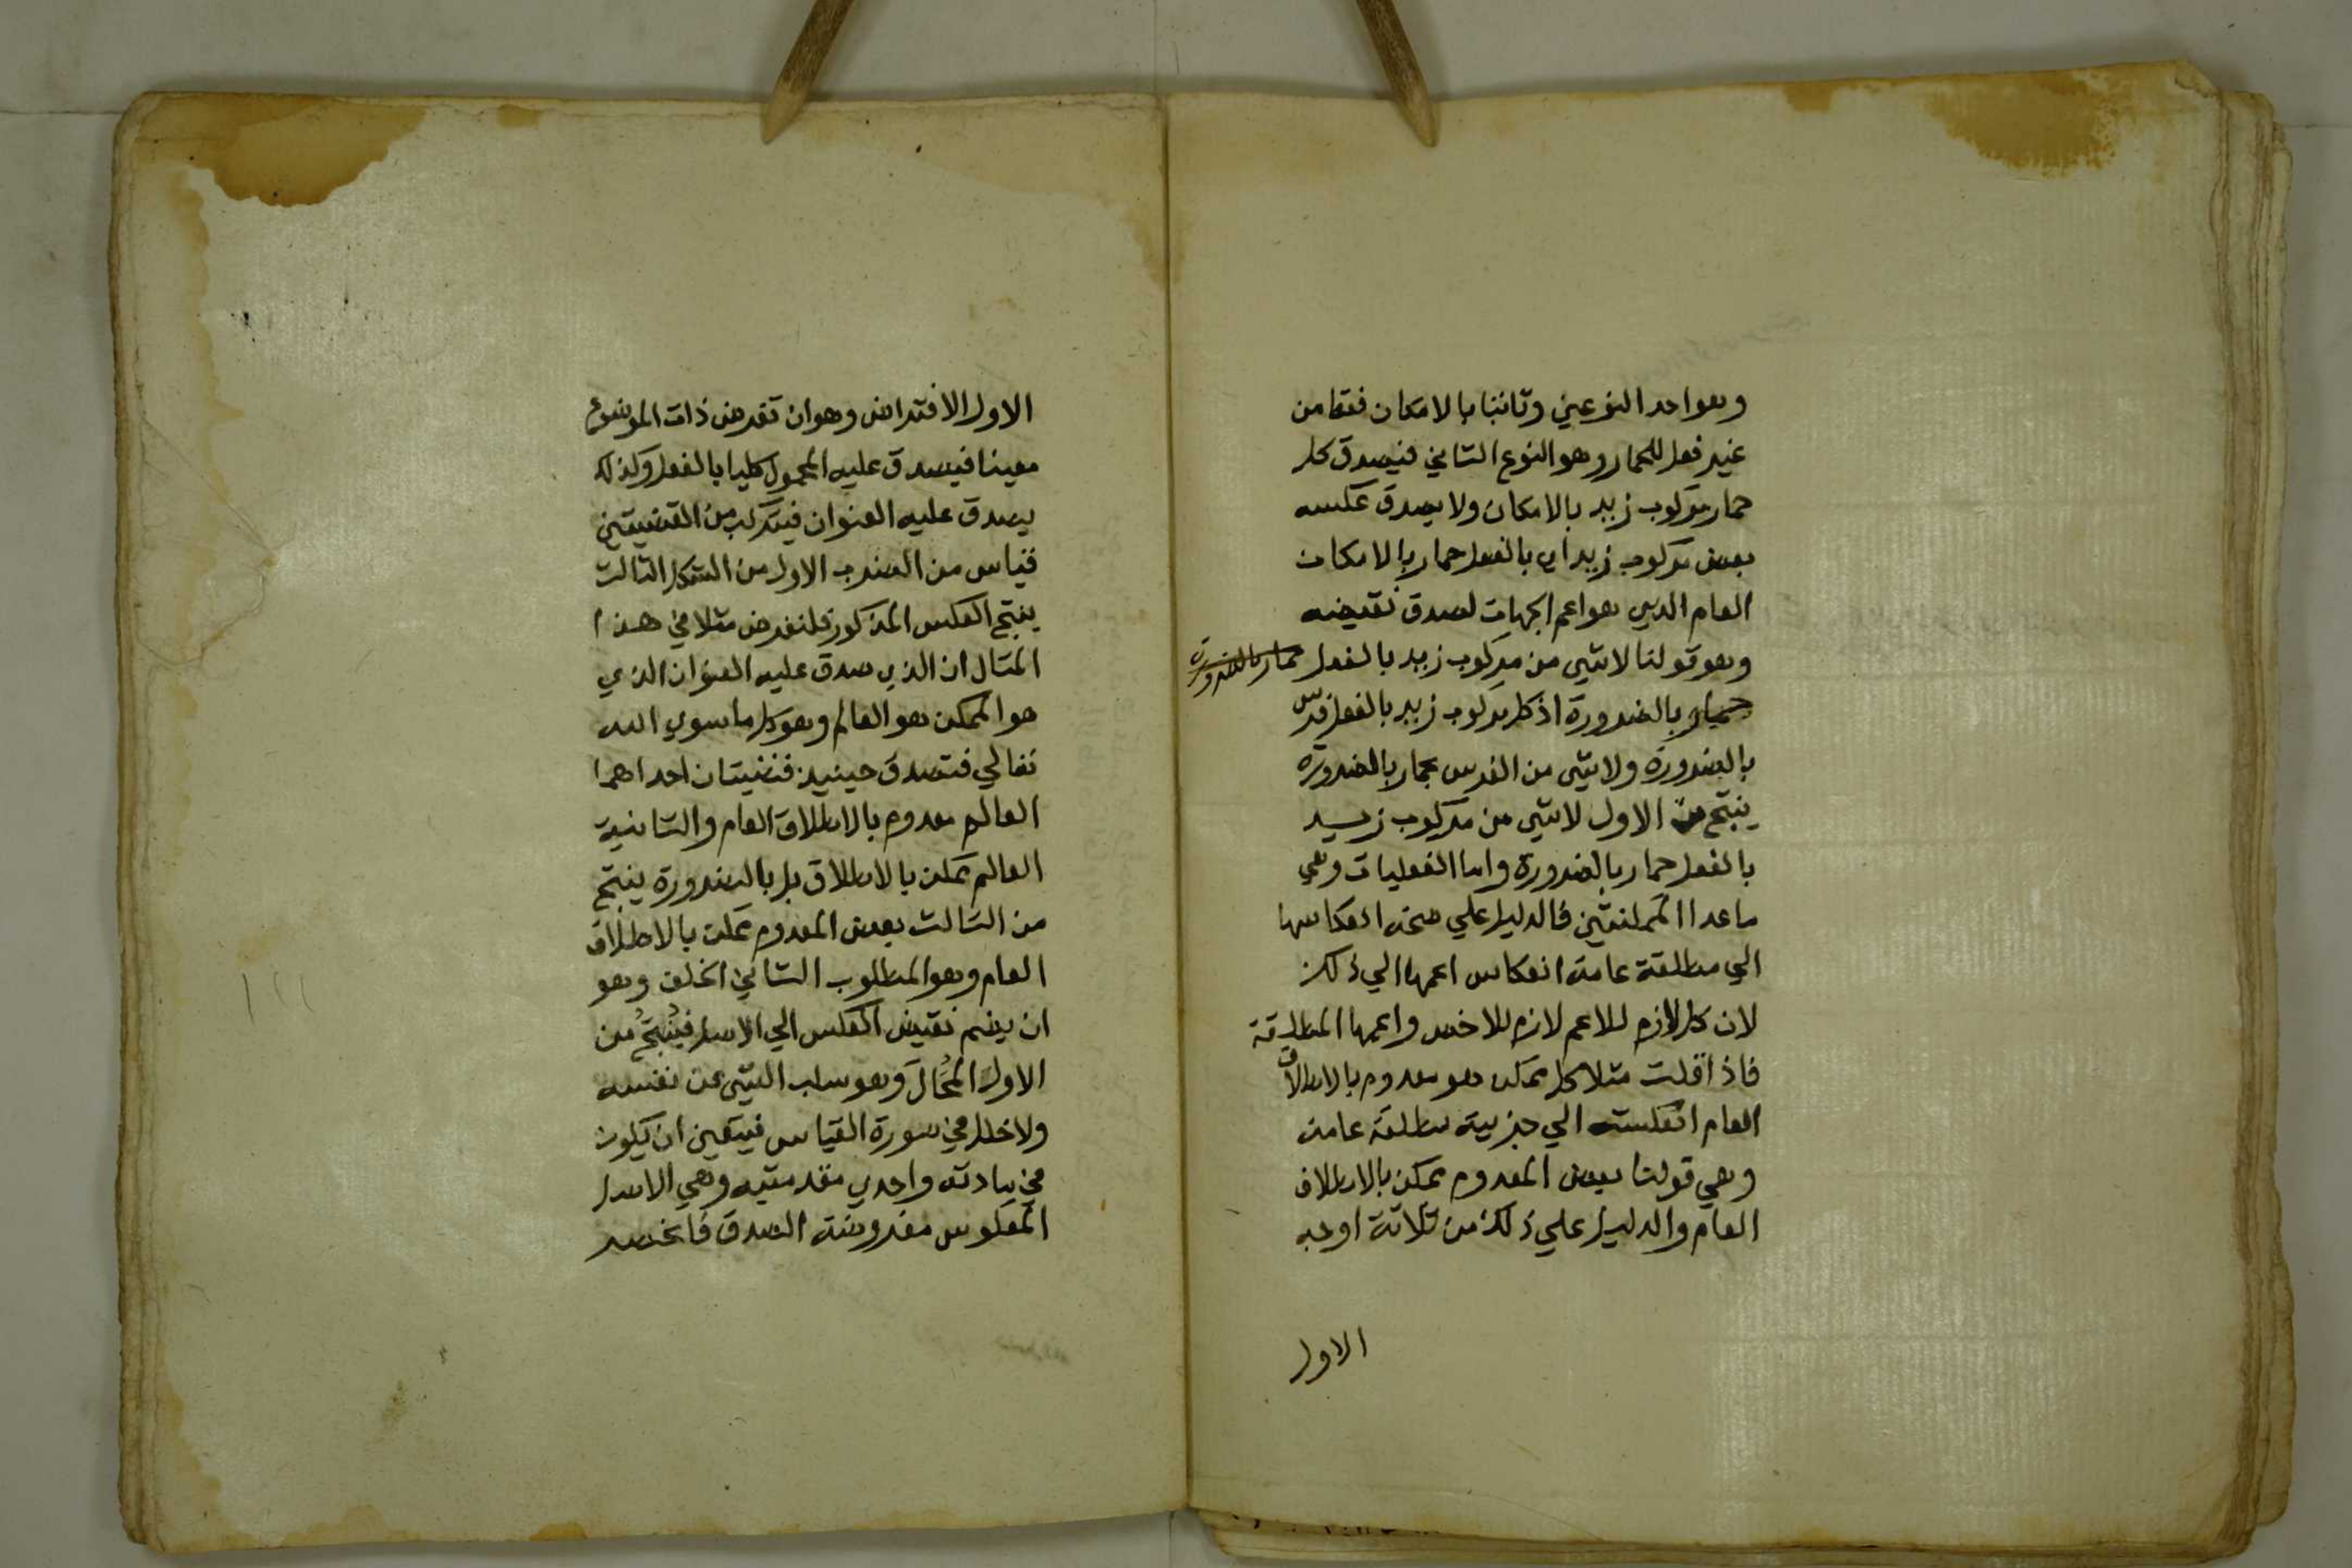 وهو احد النوعين وثانيا بالامكان فقط من
غير فعل للحمار وهو النوع الثاني فيصدق كل
حمار مركوب زيد بالامكان ولا يصدق عكسه
بعض مركوب زيد اي بالفعل حمار بالامكان
العام الذي هو اعم الجهات لصدق نقيضه
وهو قولنا لا شي من مركوب زيد بالفعل حمار بالضرورة
حمار بالضرورة اذ كل مركوب زيد بالفعل فرس
بالضرورة ولا شي من الفرس بحمار بالضرورة
ينتج من الاول لا شي من مركوب زيد
بالفعل حمار بالضرورة واما الفعليات وهي
ما عدا الممكنتين فالدليل علي صحة انعكاسها
الي مطلقة عامة انعكاس اعمها الي ذلك
لان كل لازم للاعم لازم للاخص واعمها المطلقة
فاذا قلت مثلا كل ممكن هو معدوم بالاطلاق
العام انعكست الي جزيية مطلقة عامة
وهي قولنا بعض المعدوم ممكن بالاطلاق
العام والدليل علي ذلك من ثلاثة اوجه
الاول
الاول الافتراض وهو ان تفرض ذات الموضوع
معينا فيصدق عليه المحمول كليا بالفعل وكذلك
يصدق عليه العنوان فيتركب من القضيتين
قياس من الضرب الاول من الشكل الثالث
ينتج العكس المذكور فلنفرض مثلا في هذا
المثال ان الذي صدق عليه العنوان الذي
هو الممكن هو العالم وهو كل ما سوي الله
تعالي فتصدق حينيذ قضيتان احداهما
العالم معدوم بالاطلاق العام والثانية
العالم ممكن بالاطلاق بل بالضرورة ينتج
من الثالث بعض المعدوم ممكن بالاطلاق
العام وهو المطلوب الثاني الخلف وهو
ان يضم نقيض العكس الي الاصل فينتج من
الاول المحال وهو سلب الشي عن نفسه
ولا خلل في صورة القياس فيتعين ان يكون
في مادته واحدي مقدمتيه وهي الاصل
المعكوس مفروضة الصدق فانحصر